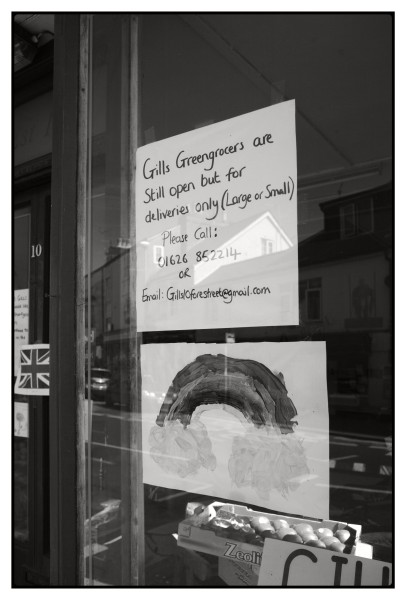 Gills Greengrocers are
Still open but for
deliveries only (Large or Small)
Please Call:
01626 852214
OR
Email: Gills10forestreet@gmail.com
10